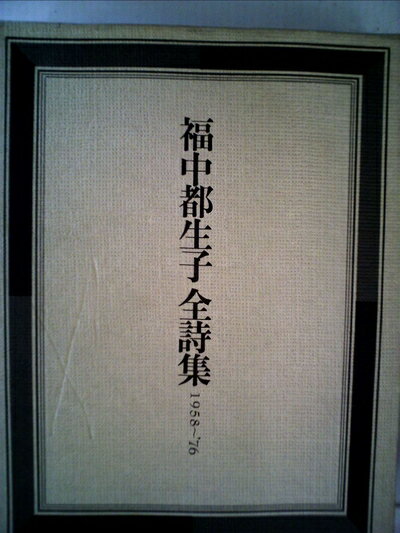 福中都生子全詩集 1958〜'76